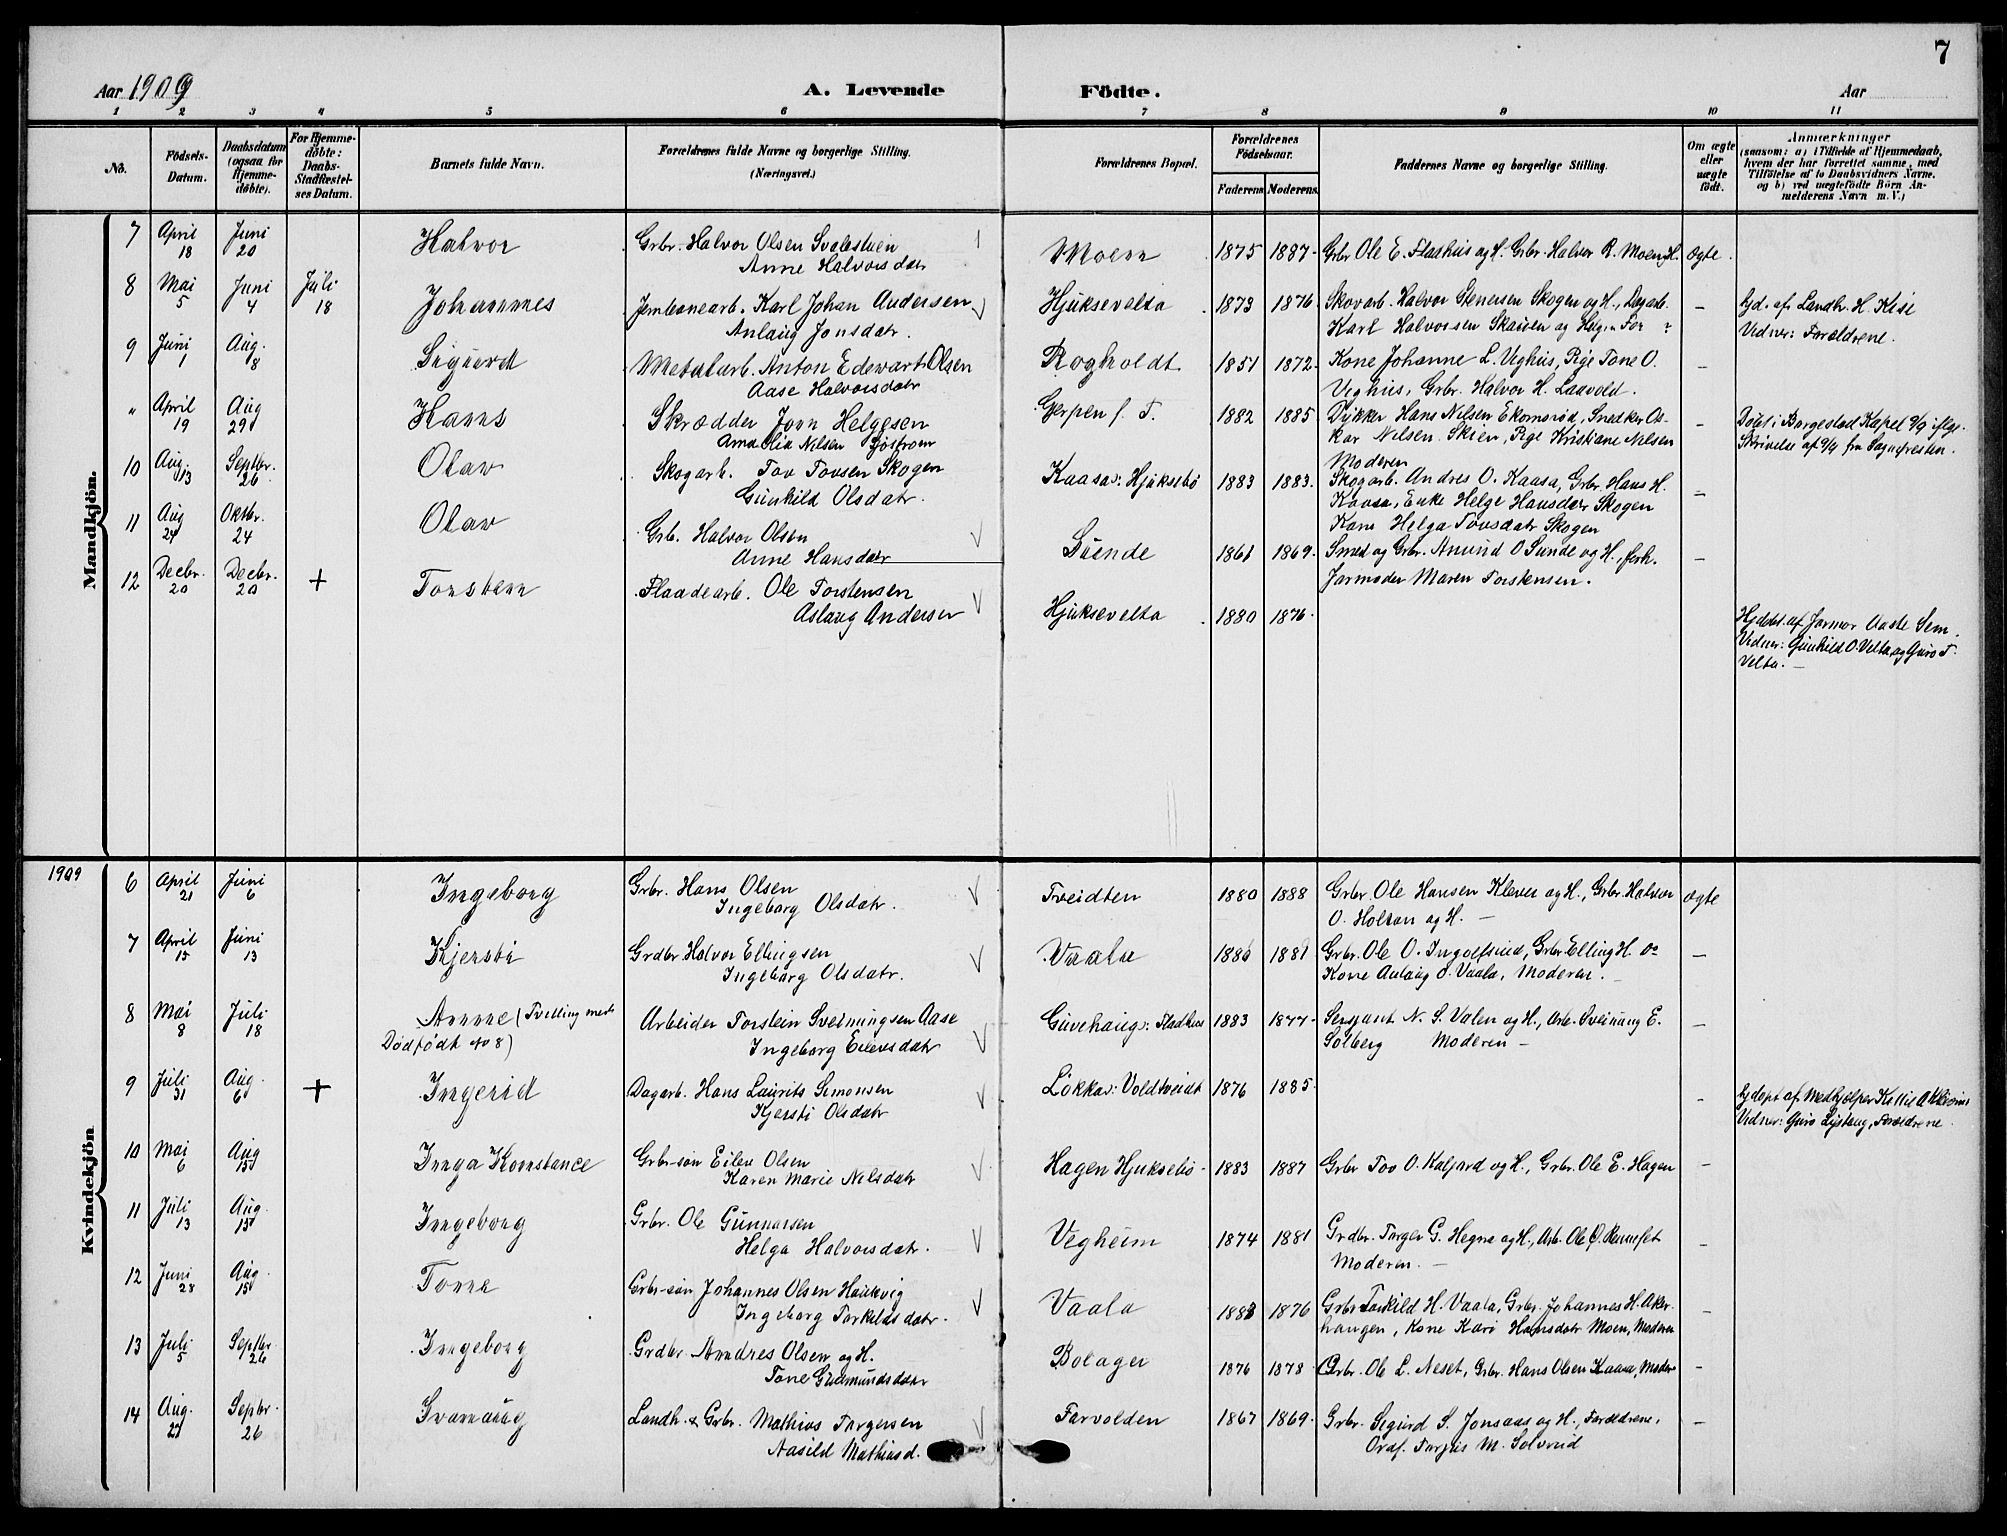 7
Aar 1909 A. Levende Födte. Aar
1 2 3 4 5 6 7 8 9 10 11
No. Födsels-Datum. Daabsdatum (ogsaa for Hjemme-döbte). For Hjemme-döbte: Daabs-Stadfæstel-ses Datum. Barnets fulde Navn. Forældrenes fulde Navne og borgerlige Stilling. (Næringsvei.) Forældrenes Bopæl. Forældrenes Födselsaar. Faderens Moderens. Faddernes Navne og borgerlige Stilling. Om ægte eller uægte födt. Anmærkninger (saasom: a) i Tilfælde af Hjemmedaab, hvem der har forrettet samme, med Tilföielse af to Daabsvidners Navne, og b) ved uægtefödte Börn An-melderens Navn m. V.)
Mandkjön.
7 April 18 Juni 20 Halvor Grbr. Halvor Olsen Svalestuen Moen 1875 1887 Grbr Ole E. Flaahus og H. Grbr. Halvor R. Moen og H. ægte.
Anne Halvorsdatr
8 Mai 5 Juni 4 Juli 18 Johannes Jernbanearb. Karl Johan Andersen Hjuksevelta 1873 1876 Skovarb. Halvor Stenersen Skogen og H., Dagarb. — hjd. af Landh. H. Kise
Anlaug Jonsdatr. Karl Halvorsen Skauen og Vidner: Forældrene.
9 Juni 1 Aug. 8 Sigurd Metalarb. Anton Edewart Olsen Rogholdt 1851 1872 Kone Johanne L. Veghus, Pige Tone O. —
Aase Halvorsdatr Veghus, Grbr. Halvor H. Laavold.
" April 19 Aug 29 Hans Skrædder Jorn Helgesen Gjerpen f. T. 1882 1885 Dykker Hans Nilsen Ekornrød, Snedker Os- — Døbt i Borgestad Kapel iflg.
Amalia Nilsen kar Nilsen Skien, Pige Kristiane Nilsen Skrivelse af fra Sognepresten.
Moderen
10 Aug. 13 Septbr. 26 Olav Skogarb. Tov Tovsen Skogen Kaasa: Hjuksebø 1883 1883. Skogarb. Andres O. Kaasa, Grbr. Hans H. —
Gunhild Olsdatr. Kaasa, Enke Helge Hansdatr Skogen
Kone Helga Tovsdatr Skogen
11 Aug 24 Oktbr. 24 Olav Grb. Halvor Olsen Suende 1861 1869. Smed og Grbr. Anund O Sunde og H., forh. —
Anne Hansdatr Jormoder Maren Torstensen.
12 Decbr. 20 Decbr. 20 + Torstein Flaadearb. Ole Torstensen Hjuksevelta 1880 1876.
Aslaug Andersen Hjdøbt. af Jormor Aaste Sem.
Vidner: Gunhild O. Velta og Guro T.
Velta. —
Kvindekjön
1909 6 April 21 Juni 6 Ingeborg Grbr. Hans Olsen Tveidten 1880 1888 Grbr Ole Hansen Klever og H., Grbr. Halvor ægte
Ingeborg Olsdatr. O. Holtan og H. —
7 April 15 Juni 13 Kjersti Grdbr. Halvor Ellingsen Vaala 1886 1881 Grbr. Ole O. Ingolfsrud, Grbr Elling H. —
Ingeborg Olsdatr. Kone Anlaug O. Vaala, Moderen.
8 Mai 8 Juli 18 Anne (Tvilling med Arbeider Torstein Sveinungsen Aase Guvehaug: Fladhus 1883 1877 Sersjant N. S. Valen og H., Arb. Sveinung E. —
Dødfødt No 8) Ingeborg Eilevsdatr Solberg Moderen —
9 Juli 31 Aug. 6 + Ingerid Dagarb. Hans Laurits Simonsen Løkka: Voldtveidt 1876 1885. — hjdøpt af Medhjælper Kittil
Kjersti Olsdatr Vidner: Guro Lystaug, Forældrene.
10 Mai 6 Aug 15 Inga Konstance Grbr-søn Eilev Olsen Hagen Hjuksebø 1883 1887 Grbr Tov O. Kaljord og H., Grbr. Ole E. Hagen —
Karen Marie Nilsdatr
11 Juli 13 Aug. 15 Ingeborg Grbr. Ole Gunnarsen Vegheim 1874 1881 Grdbr. Torger G. Hegna og H., Arb. Ole O. Rennset —
Helga Halvorsdatr. Moderen. —
12 Juni 28 Aug. 15 Tone Grbr-søn Johannes Olsen Haukvig Vaala 1883 1876 Grbr Torkild H. Vaala, Grbr. Johannes H. Aker- —
Ingeborg Torkildsdatr. haugen, Kone Kari Hansdatr Moen, Moderen
13 Juli 5 Septbr. 26 Ingeborg Grdbr. Andres Olsen og H. Bolager 1876 1878 Grbr. Ole L. Neset, Grbr. Hans Olsen Kaasa, Moder —
Tone Gudmundsdatr
14 Aug. 27 Septbr. 26 Svanaug Landh. & Grbr. Mathias Torgersen Farvolden 1867 1869. Grbr. Sigurd S. Jonsaas og H., Forældrene, —
Aasild Mathiasd. Ordf. Torjus M. Solvrud